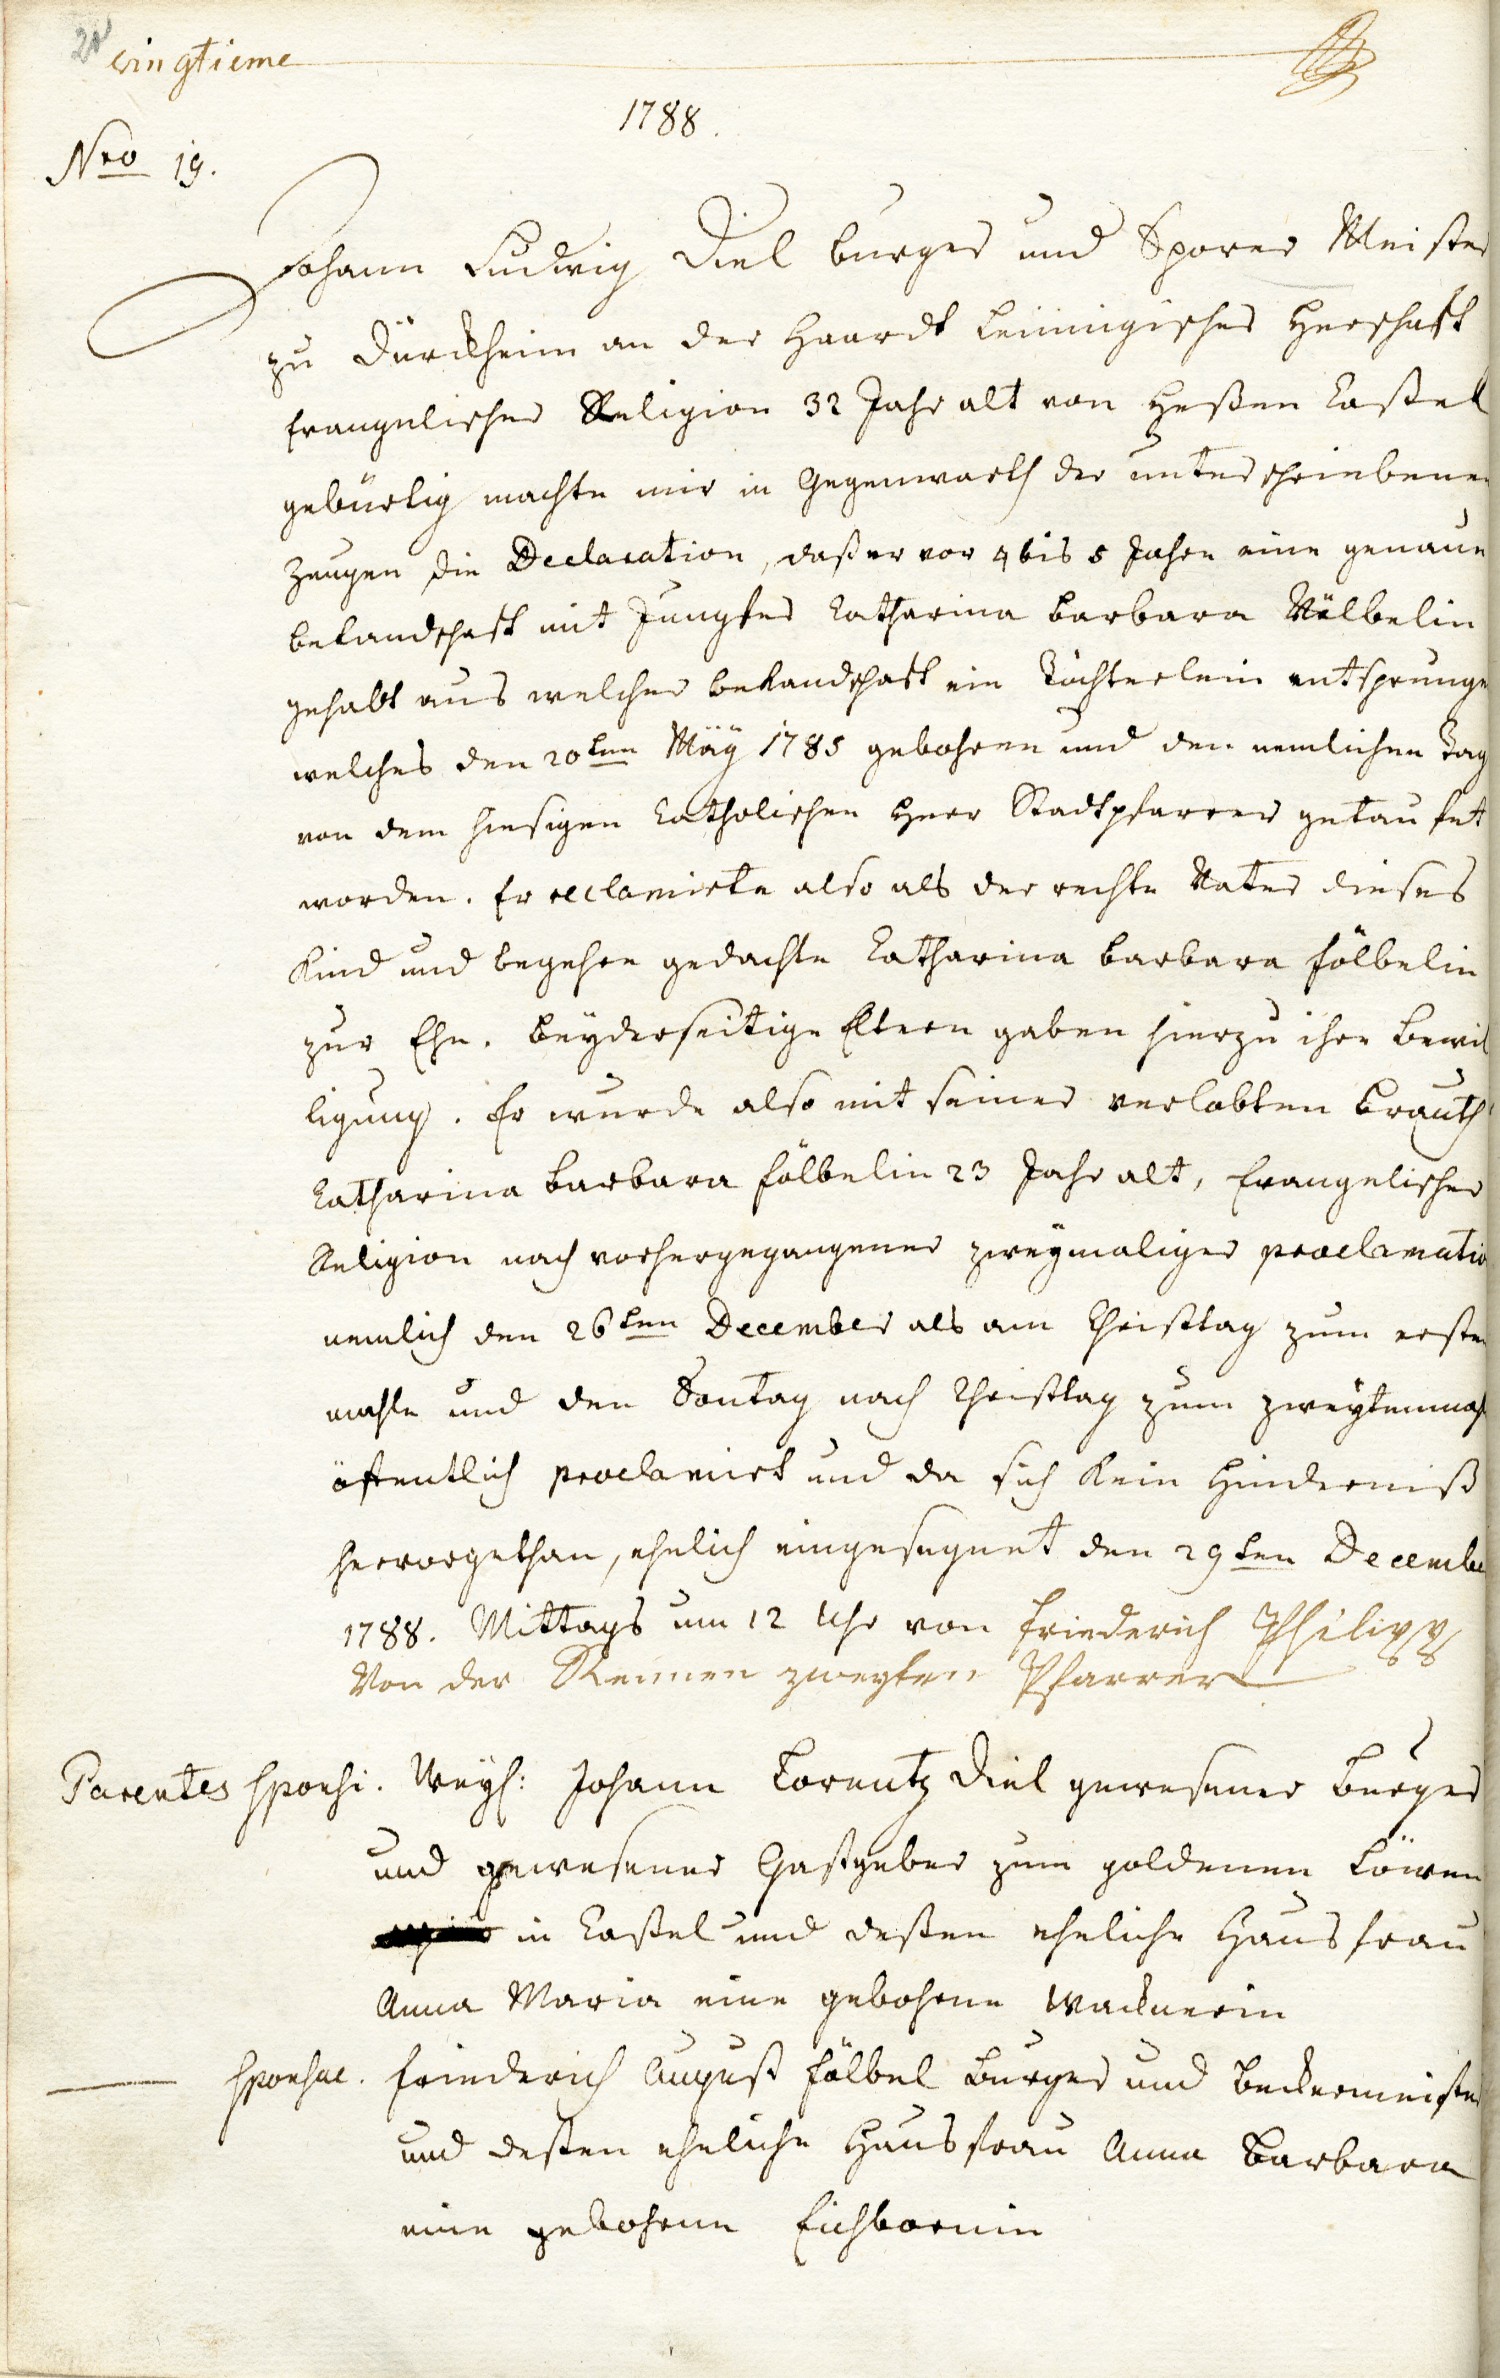 20
vingtieme
1788.
Nro 19.
Johann Ludwig Diel burger und Sporer Meister
zu Dürckheim an der Haardt Leiningischer Herschaft
Evangelischer Religion 32 Jahr alt von Heßen Caßel
gebürtig machte mir in Gegenwarth der unterschriebenen
Zeugen die Declaration, daß er vor 4 bis 5 Jahren eine genaue
bekandschaft mit Jungfer Catharina Barbara Völbelin
gehabt aus welcher bekandschaft ein Töchterlein entsprunge
welches den 20ten May 1785 gebohren und den nemlichen Tag
von dem hiesigen Catholischen Herr Stadtpfarrer getaufet
worden. Er reclamirte also als der rechte Vater dieses
Kind und begehre gedachte Catharina Barbara Fölbelin
zur Ehe. Beyderseitige Eltern gaben hierzu ihre Bewil
ligung. Er wurde also mit seiner verlobten Brauth
Catharina Barbara Fölbelin 23 Jahr alt, Evangelischer
Religion nach vorhergegangener zweymaliger proclamatio
nemlich den 26ten December als am Christtag zum ersten
mahle und den Sontag nach Christtag zum zweytenmahl
öffentlich proclamirt und da sich kein Hinderniß
hervorgethan, ehelich eingesegnet den 29ten December
1788. Mittags um 12 Uhr von Friederich Philipp
Von der Nennen zweyten Pfarrer
Parentes Sponsi. Weyl: Johann Lorentz Diel gewesener Burger
und gewesener Gastgeber zum goldenen Löwen
in Caßel und deßen eheliche Hausfrau
Anna Maria eine gebohrne Wacknerin
Sponsae. Friederich August Fölbel Burger und Beckermeister
und deßen eheliche Hausfrau Anna Barbara
eine gebohrne Eichbornin